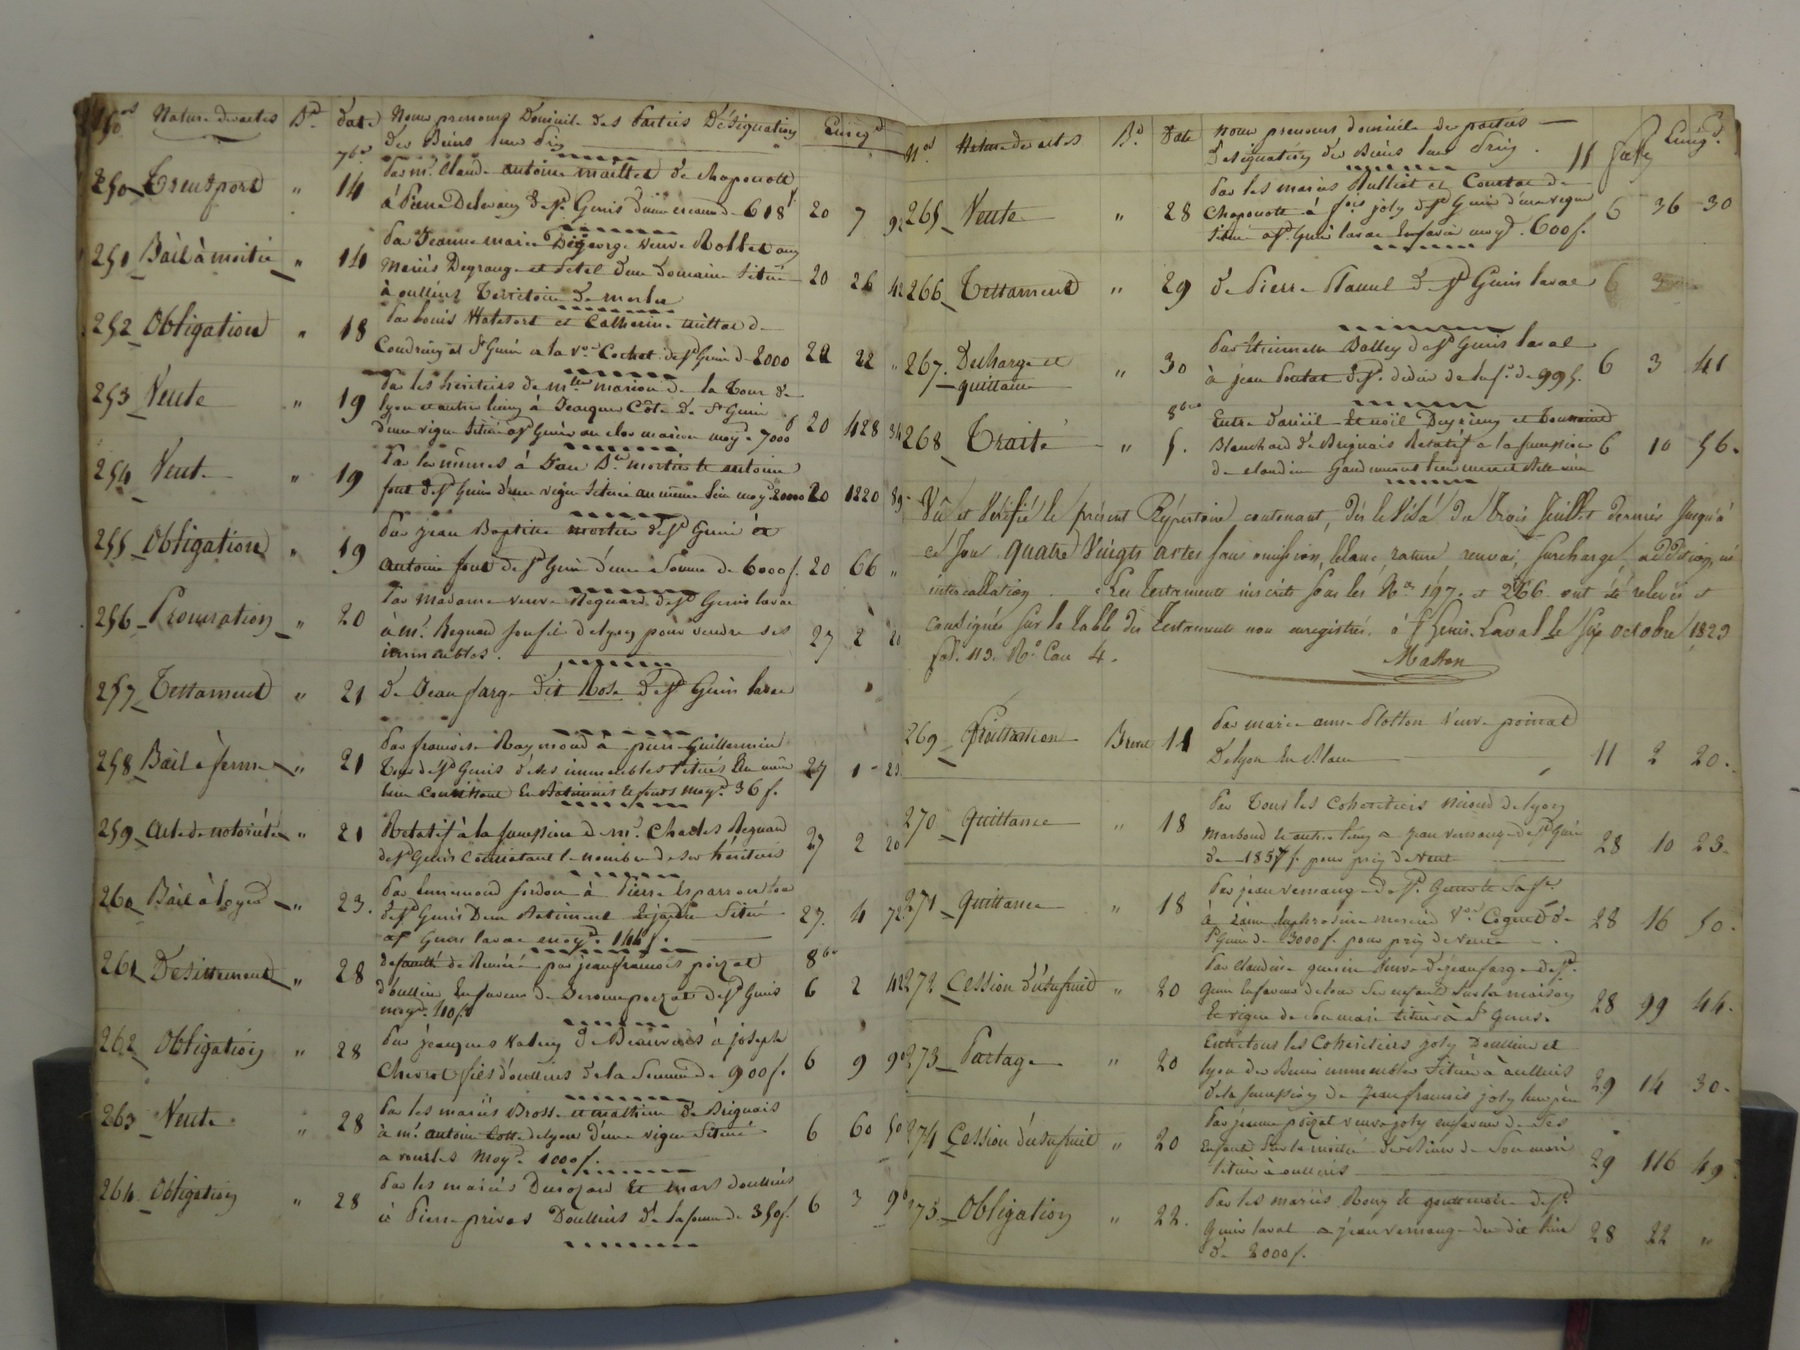 Nos Nature des actes Bd. date Noms prenoms Domicile des Parties Désignation Enregt
des Biens leur Prix
7bre
250 Transport " 14 Par mr. Claude antoine maillet de chaponost
à Pierre Delorme de St. Genis d'une créance de 618 f 20 7 92
251 Bail à moitié " 14 Par Jeanne marie Digeorge veuve Rollet aux
Mariés Degrange et Petel d'un Domaine Situé 20 26 42
à oullins Territoire de merlus
252 Obligation " 18 Par Louis et Catherine de
Coudrieu et St Genis a la ve. Cochet de St Genis de 2000 22 22 "
253 Vente " 19 Par les héritiers de mlle marion de la Tour de
lyon et autres lieux à Jacques Côte de St Genis
d'une vigne Située a St Genis au clos marion moyt. 7000 f 20 428 34
254 Vente " 19 Par les mêmes à Jean Bte mortier et antoine
font de St Genis d'une vigne Située au même lieu moyt 20000 20 1220 89
255 Obligation " 19 Par jean Baptiste mortier de St Genis à
antoine font de St Genis d'une Somme de 6000 f. 20 66 "
256 Procuration " 20 Par Madame veuve Regnard de St Genis laval
à mr. Regnard son fils de lyon pour vendre ses 27 2 20
immeubles.
257 Testament " 21 de Jean farge dit Rose de St Genis laval
258 Bail à ferme " 21 Par françois Raymond à pierre Guillermin
Tous de St Genis d'des immeubles situés au même 27 1 23
lieu Consistant En Batiments et fonds moyt. 36 f.
259 acte de notoriété " 21 Relatif à la succession de mr. Charles Regnard
de St Genis Constatant le nombre de ses héritiers 27 2 20
260 Bail à loyer " 23. Par à Pierre
de St Genis D'un Batiment et jardin Situé 27. 4 72
a St Genis laval moyt.
8bre
261 Desistement " 28 de faculté de Réméré par jean françois poizat
d'oullins En faveur de Jerome poizat de St Genis 6 2 42
moyt. 110 f.
262 Obligation " 28 Par jacques Valery de Beauvais à joseph
Chevrot fils d'oullins de la Somme de 900 f. 6 9 90
263 Vente " 28 Par les mariés Brosse et mathieu de Brignais
à mr. antoine de lyon d'une vigne Située 6 60 50
a vourles moyt. 1000 f.
264 Obligation " 28 Par les mariés Durozard Et d'oullins
à Pierre privas D'oullins de la somme de 350 f. 6 3 90
Nos. Nature des actes Bd. Date Noms prenoms domicile des parties
Désignation des Biens leur Prix. Enregt.
265 Vente " 28 Par les mariés Rulliat et Couttas de
Chaponost à fois joly de St Genis d'une vigne 6 36 30
située a St. Genis laval moyt. 600 f.
266 Testament " 29 de Pierre de St Genis laval 6
267. Decharge et " 30 Par Etiennette Balley de St Genis laval
quittance à jean de St. didier de la Se. de 995. 6 3 41
8bre
268 Traité " 5. Entre daniel et noël et Toussaint
Blanchard de Brignais Relatif a la succession 6 10 56.
de claudine
Vû et Vérifié le présent Répertoire contenant, dès le Visa du trois Juillet dernier jusqu'à
ce jour quatre Vingts actes sans omission, blanc, rature, renvoi, surcharge, addition, ni
intercallation. Les Testaments inscrits sous les Nos 197. et 266. ont été relevés et
consignés sur la table des Testaments non enregistrés. à St Genis-Laval le six octobre 1829
fo. 113. Ro. Case 4. Matton
269 Quittance Brevet 11 Par marie anne Plotton veuve poinat
De lyon En Blanc 11 2 20.
270 Quittance " 18 Par Tous les cohéritiers de lyon
et autres lieux a jean vernange de St Genis
de 1857 f. pour prix de vente 28 10 23.
271 Quittance " 18 Par jean vernange de St. Genis
à Dame Euphrosine ve. Coquet de 28 16 50.
St Genis de 3000 f. pour prix de vente
272 Cession d'usufruit " 20 Par Claudine guerin veuve de jean farge de St.
Genis En faveur de tous ses enfants Sur la maison 28 99 44.
et vigne de Son mari située a St Genis.
273 Partage " 20 Entre tous les Cohéritiers joly D'oullins et
lyon des Biens immeubles Situés à oullins 29 14 30.
de la succession de jean françois joly leur père
274 Cession d'usufruit " 20 Par jeanne poizat veuve joly en faveur de Ses
Enfants Sur la moitié des Biens de Son mari 29 116 49
située à oullins
275 Obligation " 22. Par les mariés Roux et de St.
Genis laval a jean vernange du dit lieu 28 22 "
de 2000 f.